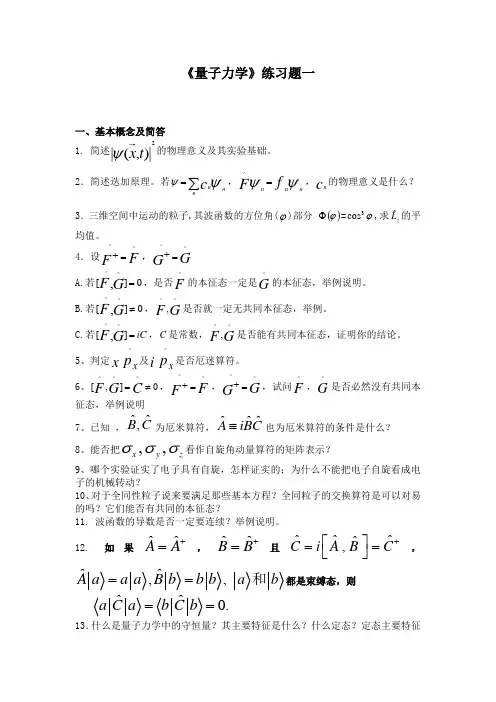 《量子力学》练习题一
一、基本概念及简答
1. 简述|ψ(x⃗,t)|²的物理意义及其实验基础。
2．简述迭加原理。若ψ=∑ₙcₙψₙ，F̂ψₙ=fₙψₙ，cₙ的物理意义是什么？
3．三维空间中运动的粒子,其波函数的方位角(φ)部分 Φ(φ)=cos³φ,求L̂z的平
均值。
4．设F̂⁺=F̂，Ĝ⁺=Ĝ
A.若[F̂,Ĝ]=0，是否F̂的本征态一定是Ĝ的本征态，举例说明。
B.若[F̂,Ĝ]≠0，F̂,Ĝ是否就一定无共同本征态，举例。
C.若[F̂,Ĝ]=iC，C是常数，F̂,Ĝ是否能有共同本征态，证明你的结论。
5、判定x pₓ及i pₓ是否厄迷算符。
6、[F̂,Ĝ]=Ĉ≠0，F̂⁺=F̂，Ĝ⁺=Ĝ，试问F̂，Ĝ是否必然没有共同本
征态，举例说明
7、已知 ，B̂,Ĉ为厄米算符，Â≡iB̂Ĉ也为厄米算符的条件是什么？
8、能否把σx,σy,σz看作自旋角动量算符的矩阵表示？
9、哪个实验证实了电子具有自旋，怎样证实的；为什么不能把电子自旋看成电
子的机械转动？
10、对于全同性粒子说来要满足那些基本方程？全同粒子的交换算符是可以对易
的吗？它们能否有共同的本征态？
11. 波函数的导数是否一定要连续？举例说明。
12. 如果Â=Â⁺，B̂=B̂⁺且Ĉ=i[Â,B̂]=Ĉ⁺，
Â|a⟩=a|a⟩,B̂|b⟩=b|b⟩, |a⟩和|b⟩都是束缚态，则
⟨a|Ĉ|a⟩=⟨b|Ĉ|b⟩=0.
13.什么是量子力学中的守恒量？其主要特征是什么？什么定态？定态主要特征